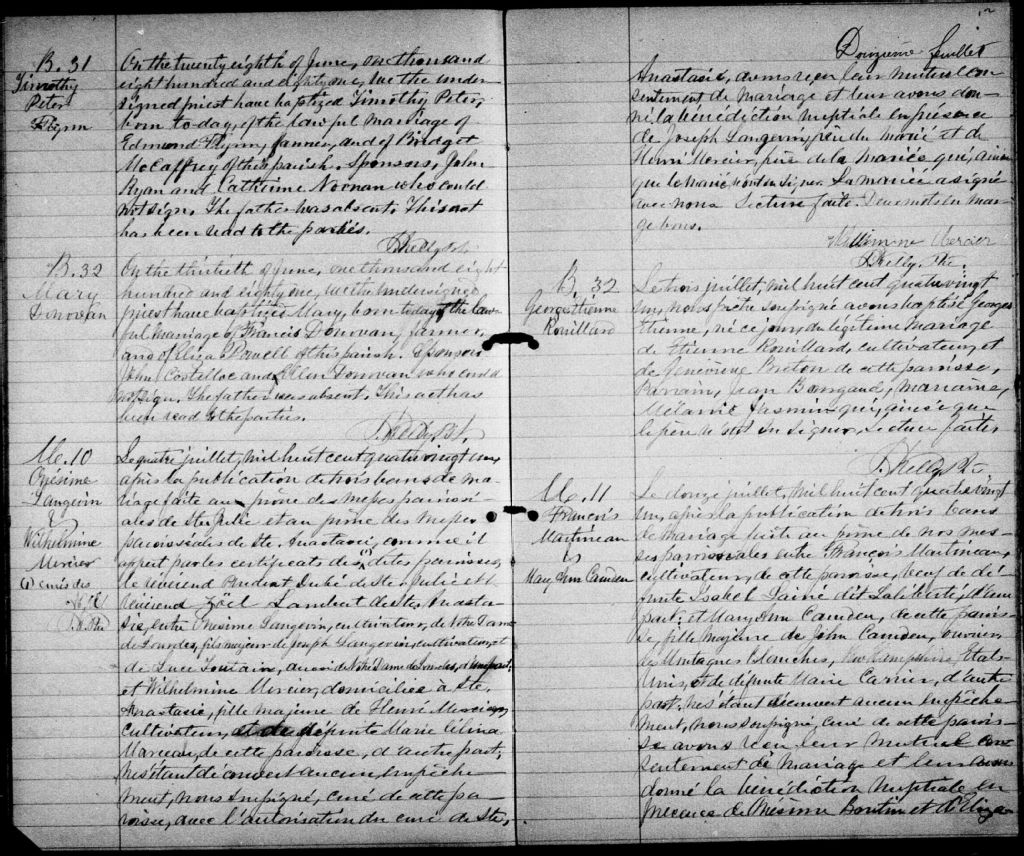 B. 31
Timothy
Peter
Flynn
On the twenty eighth of June, one thousand
eight hundred and eighty one, we the under-
signed priest have baptized Timothy Peter,
born to-day, of the lawful marriage of
Edmond Flynn, farmer, and of Bridget
McCaffrey of this parish. Sponsors, John
Ryan and Catherine Noonan who could
not sign. The father was absent. This act
has been read to the parties.
J. Kelly, Pst.
B. 32
Mary
Donovan
On the thirtieth of June, one thousand eight
hundred and eighty one, we the undersigned
priest have baptized Mary, born today of the law-
ful marriage of Francis Donovan, farmer,
and of Eliza Powell of this parish. Sponsors
John Costelloe and Ellen Donovan who could
not sign. The father was absent. This act has
been read to the parties.
J. Kelly, Pst.
M. 10
Onésime
Langevin
&
Wilhelmine
Mercier
(1) curés des
J. K. Ptre
Le quatre juillet, mil huit cent quatre vingt un,
après la publication de trois bans de ma-
riage faite au prône des messes parois-
siales de Ste Julie et au prône des messes
paroissiales de Ste. Anastasie, comme il
appert par les certificats des (1) dites paroisses,
le révérend Prudent Dubé de Ste. Julie et
révérend Zoël Lambert de Ste. Anasta-
sie, entre Onésime Langevin, cultivateur, de Notre Dame
de Lourdes, fils majeur de Joseph Langevin, cultivateur, et
de Luce Fontain, aussi de Notre Dame de Lourdes, d'une part;
et Wilhelmine Mercier, domiciliée à Ste.
Anastasie, fille majeure de Henri Mercier,
cultivateur, et de défunte Marie Célina
Marceau, de cette paroisse, d'autre part;
ne s'étant découvert aucun empêche-
ment, nous soussigné, curé de cette pa-
roisse, avec l'autorisation du curé de Ste.
12
Douzième feuillet
Anastasie, avons reçu leur mutuel con-
sentement de mariage et leur avons don-
né la bénédiction nuptiale en présence
de Joseph Langevin, père du marié et de
Henri Mercier, père de la mariée qui, ainsi
que le marié n'ont su signer. La mariée a signé
avec nous. Lecture faite. Deux mots en mar-
ge bons.
Willemine Mercier
J. Kelly, Ptre.
B. 32
Georges Etienne
Rouillard
Le trois juillet, mil huit cent quatre vingt
un, nous prêtre soussigné avons baptisé Georges
Etienne, né ce jour, du légitime mariage
de Etienne Rouillard, cultivateur, et
de Geneviève Breton de cette paroisse,
Parrain, Jean Bourgaud, marraine,
Mélanie Jasmin qui, ainsi que
le père n'ont su signer. Lecture faite.
J. Kelly, Ptre
M. 11
François
Martineau
&
Mary Ann Camden
Le douze juillet, mil huit cent quatre vingt
un, après la publication de trois bans
de mariage faite au prône de nos mes-
ses paroissiales entre François Martineau,
cultivateur, de cette paroisse, veuf de dé-
funte Isabel Jainé dit Laliberté, d'une
part; et Mary Ann Camden, de cette parois-
se, fille majeure de John Camden, ouvrier,
les Montagnes Blanches, New Hampshire, Etats-
Unis, et de défunte Marie Carrier, d'autre
part; ne s'étant découvert aucun empêche-
ment, nous soussigné, curé de cette parois-
se avons reçu leur mutuel con-
sentement de mariage et leur avons
donné la bénédiction nuptiale en
présence de Onésime Boutin et d'Eliza-